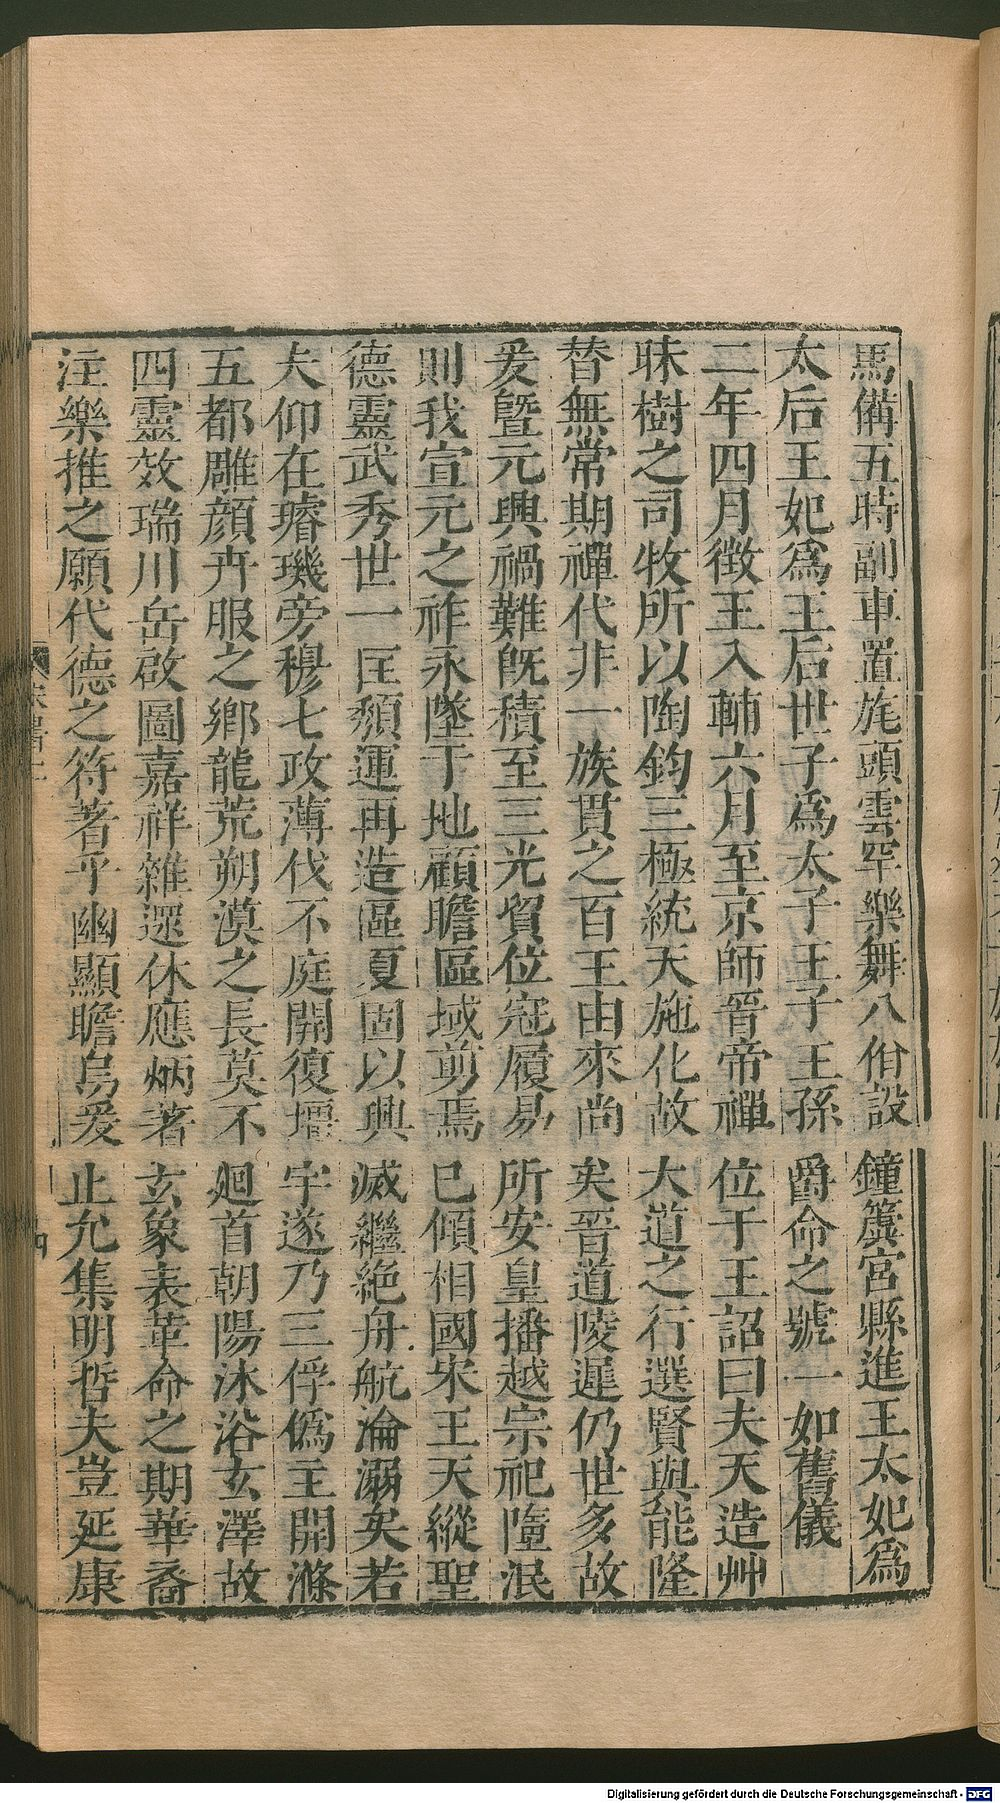 馬備五時副車置旄頭雲罕樂舞八佾設鐘簴宮縣進王太妃爲
太后王妃爲王后世子爲太子王子王孫爵命之號一如舊儀
二年四月徵王入輔六月至京師晉帝禪位于王詔曰夫天造艸
昧樹之司牧所以陶鈞三極統天施化故大道之行選賢與能隆
替無常期禪代非一族貫之百王由來尚矣晉道陵遲仍世多故
爰曁元興禍難旣積至三光貿位冠履易所安皇播越宗祀墮泯
則我宣元之祚永墜于地顧瞻區域剪焉已傾相國宋王天縱聖
德靈武秀世一匡頹運再造區夏固以興滅繼絶舟航淪溺矣若
夫仰在璿璣旁穆七政薄伐不庭開復壃宇遂乃三俘僞主開滌
五都雕顔卉服之鄉龍荒朔漠之長莫不廻首朝陽沐浴玄澤故
四靈效瑞川岳啟圖嘉祥雜遝休應炳著玄象表革命之期華裔
注樂推之願代德之符著乎幽顯瞻烏爰止允集明哲夫豈延康
四
Digitalisierung gefördert durch die Deutsche Forschungsgemeinschaft - DFG